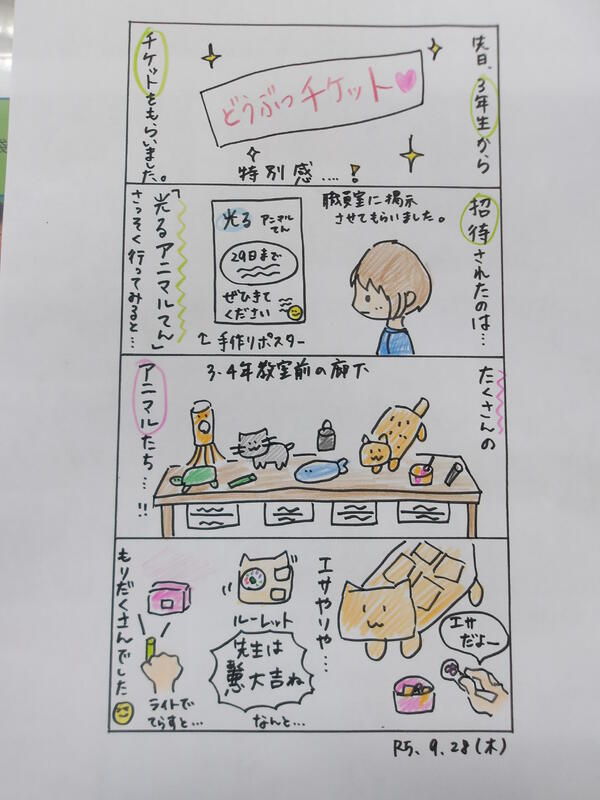 先日、3年生から
チケットをもらいました。
どうぶつチケット
特別感…!
招待されたのは…
職員室に掲示
させてもらいました。
光る アニマル
てん
29日まで
ぜひきて
ください
↑手作りポスター
「光るアニマルてん」
さっそく行ってみると…
たくさんの
3・4年教室前の廊下
アニマルたち…!!
エサやりや…
エサ
だよー
ルーレット
先生は
大吉ね
なんと…
ライトで
てらすと…
もりだくさんでした
R5.9.28(木)